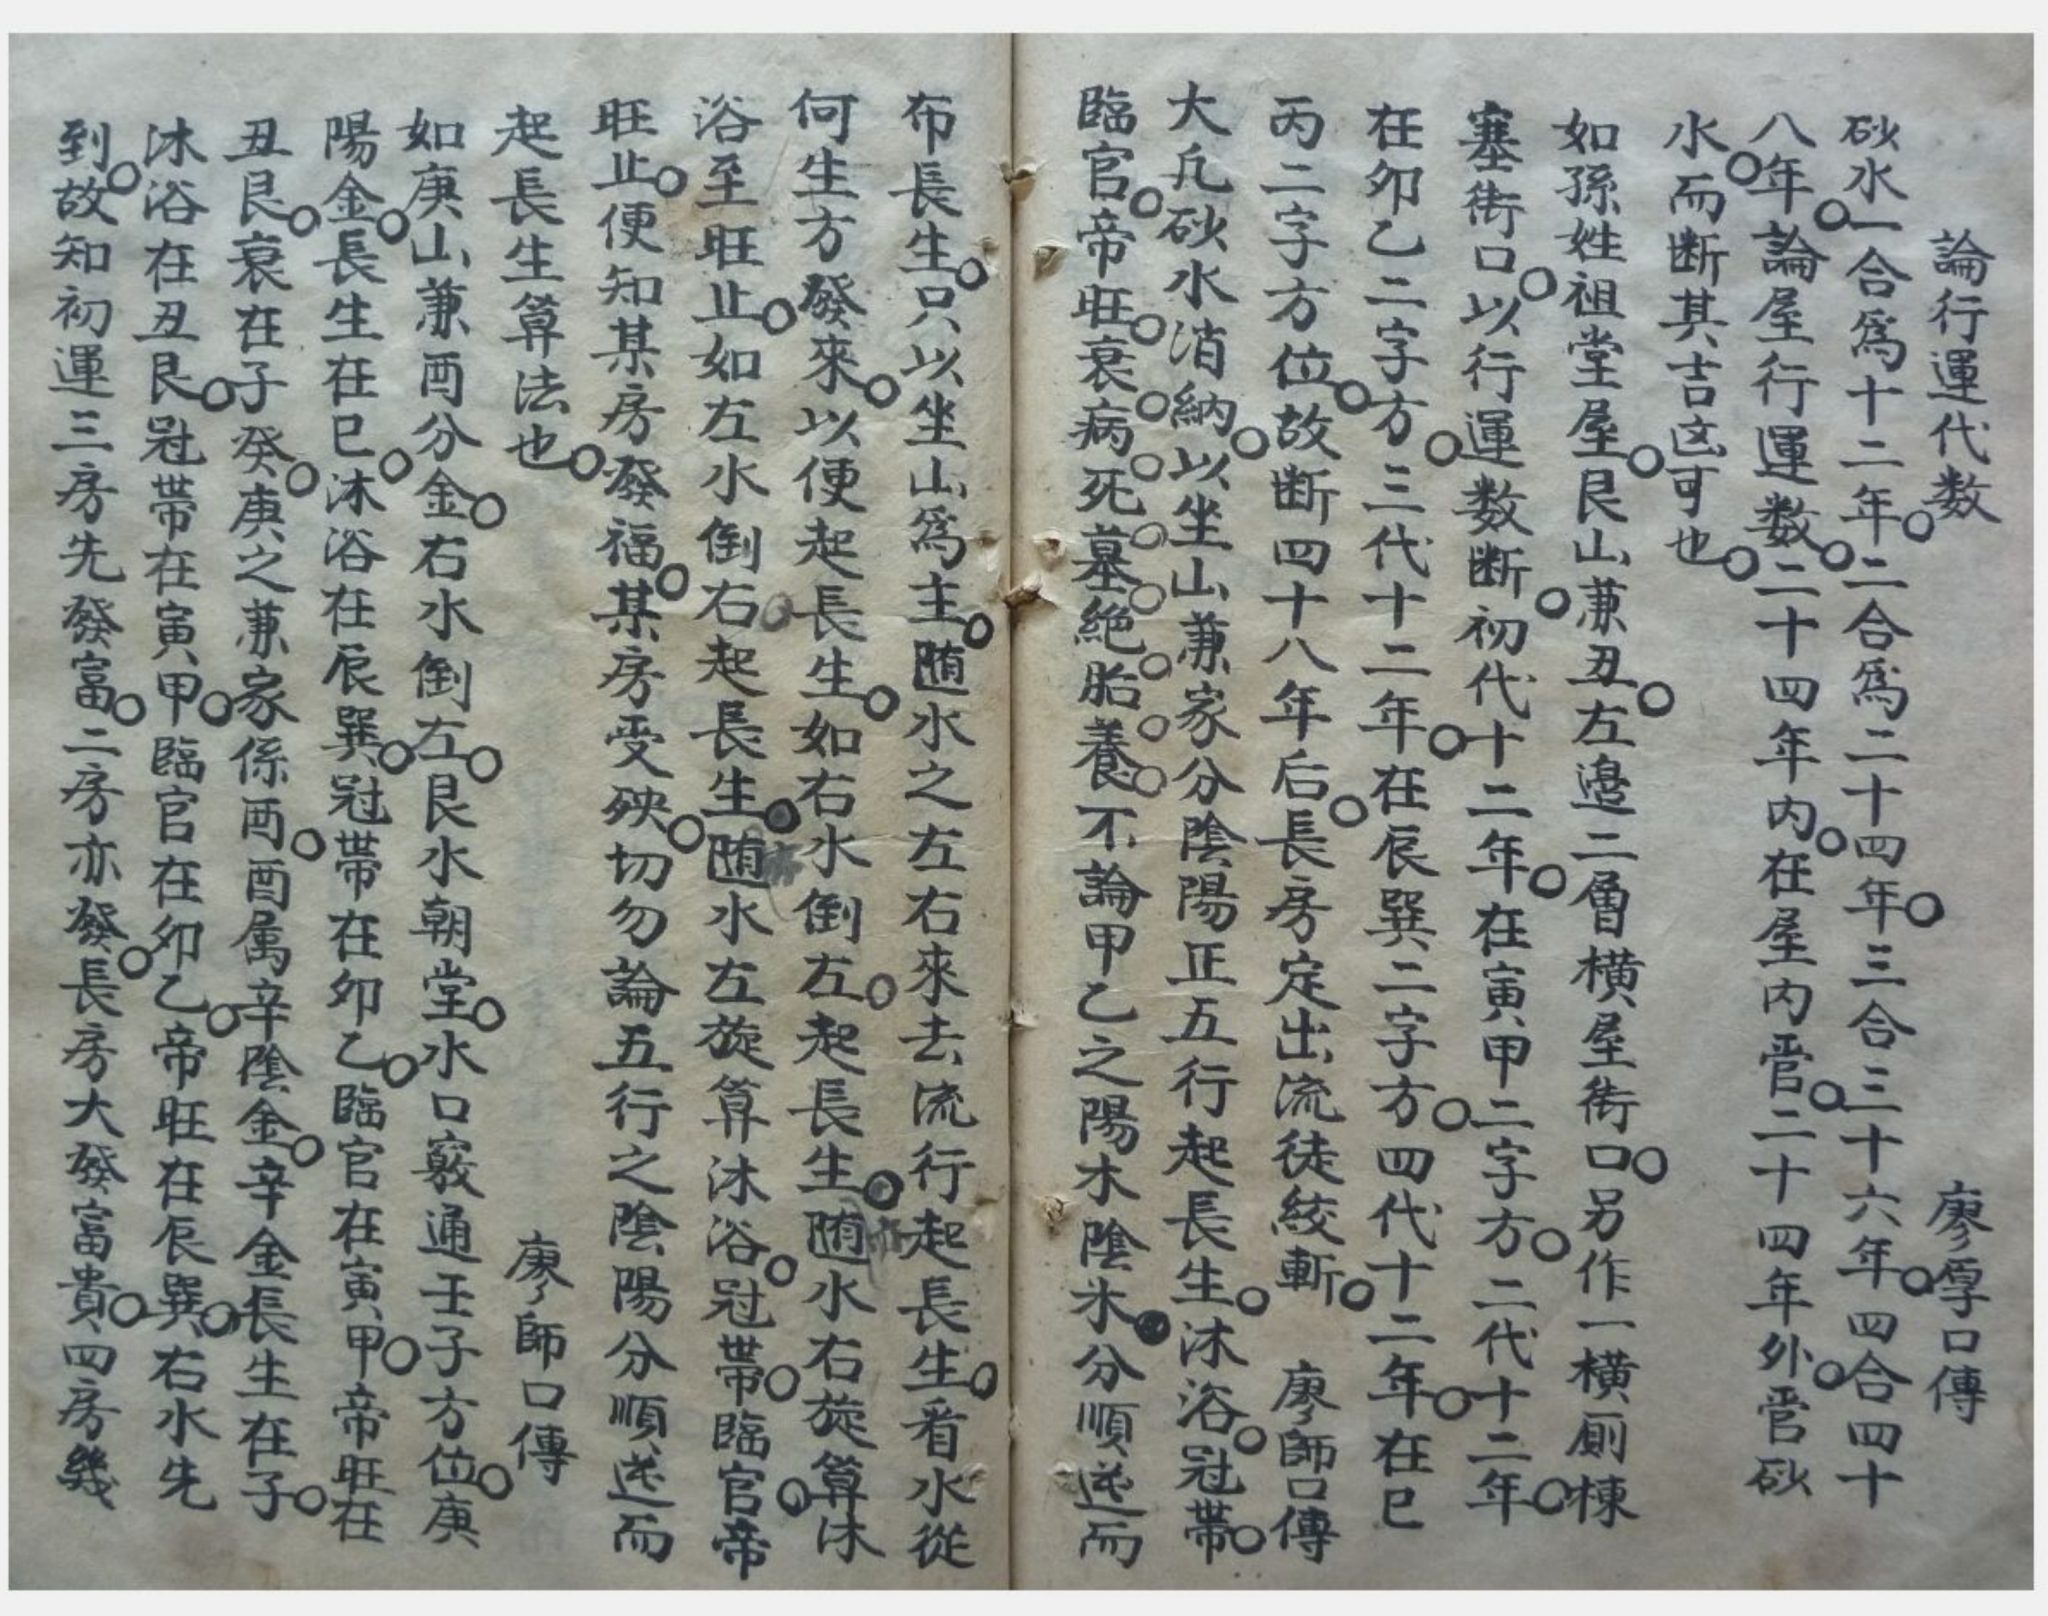 論行運代数 廖厚口傳
砂水。一合爲十二年。二合爲二十四年。三合三十六年。四合四十
八年。論屋行運数。二十四年内。在屋内管。二十四年外。管砂
水。而断其吉凶可也。
如孫姓祖堂屋。艮山兼丑。左邉二層橫屋衖口。另作一橫厠棟
塞衖口。以行運数断。初代十二年。在寅甲二字方。二代十二年。
在卯乙二字方。三代十二年。在辰巽二字方。四代十二年。在巳
丙二字方位。故断四十八年后。長房定出流徒絞斬。 廖師口傳
大凡砂水消納。以坐山兼家分陰陽正五行起長生。沐浴。冠帶。
臨官。帝旺。衰。病。死。墓。絶。胎。養。不論甲乙之陽木陰木。分順逆而
布長生。只以坐山爲主。随水之左右來去流行起長生。看水從
何生方發來。以便起長生。如右水倒左。起長生。随水右旋算沐
浴至旺止。如左水倒右。起長生。随水左旋算沐浴。冠帶。臨官。帝
旺止。便知某房發福。某房受殃。切勿論五行之陰陽分順逆而
起長生算法也。 廖師口傳
如庚山兼酉分金。右水倒左。艮水朝堂。水口竅通壬子方位。庚
陽金。長生在巳。沐浴在辰巽。冠帶在卯乙。臨官在寅甲。帝旺在
丑艮。衰在子癸。庚之兼家係酉。酉属辛陰金。辛金長生在子。
沐浴在丑艮。冠帶在寅甲。臨官在卯乙。帝旺在辰巽。右水先
到。故知初運三房先發富。二房亦發。長房大發富貴。四房幾